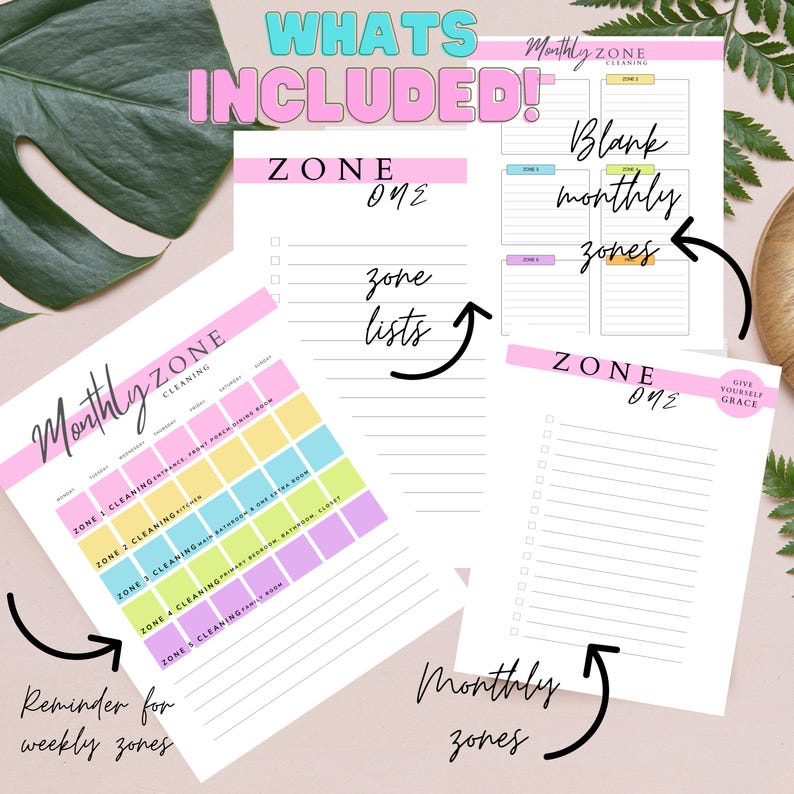 WHATS
INCLUDED!
Monthly ZONE
CLEANING
ZONE 2
ZONE 3
ZONE 5
Blank
monthly
zones
ZONE
ONE
zone
lists
Monthly ZONE
CLEANING
MONDAY TUESDAY WEDNESDAY THURSDAY FRIDAY SATURDAY SUNDAY
ZONE 1 CLEANING ENTRANCE, FRONT PORCH, DINING ROOM
ZONE 2 CLEANING KITCHEN
ZONE 3 CLEANING MAIN BATHROOM & ONE EXTRA ROOM
ZONE 4 CLEANING PRIMARY BEDROOM, BATHROOM, CLOSET
ZONE 5 CLEANING FAMILY ROOM
Reminder for
weekly zones
ZONE
ONE
GIVE
YOURSELF
GRACE
Monthly
zones